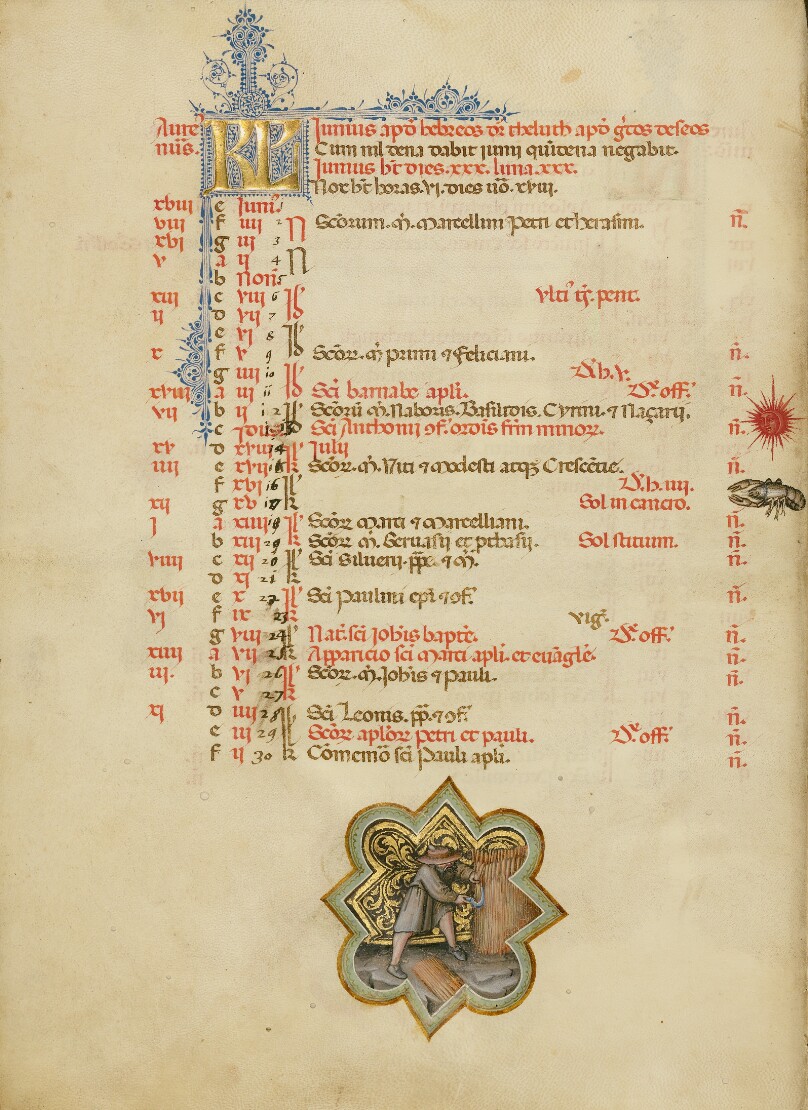 Aure KL Junius apd hebreos dr theluth apd gtos deseos
nus. Cum nil dena dabit juni quidena negabit.
Junius ht dies .xxx. luna .xxx.
Nox ht horas .vi. dies uo .xviii.
xviii e Juni
viii f iiii 2 N Scorum. M. Marcellini Petri et herasmi. n.
xvi g iii 3
v a ii 4 N
b Non 5
xiii c viii 6 Id pent.
ii d vii 7
e vi 8 Id
x f v 9 Scorz. M primi 7 feliciani. n.
g iiii 10 D. h. v.
xviii a iii 11 Id Sci barnabe apli. D. off. n.
vii b ii 12 Scoru M. Naboris. Basilidis. Cyrini. 7 Nazarij. n.
c Idus 13 Sci Anthonij 9f. ordis frm minorz. n.
xv d xviii 14 kl Julij
iiii e xvii 15 Scorz. M. Viti 7 Modesti atqz Crescentie. n.
f xvi 16 kl D. h. iiii.
xii g xv 17 Sol in cancro.
j a xiiii 18 kl Scorz Marci 7 Marcelliani. n.
b xiii 19 Scorz M. Geruasij et pthasij. Sol stitium. n.
viiii c xii 20 kl Sci Silueri. pp. 7 M. n.
d xi 21
xvii e x 22 kl Sci Paulini epi 7 9f. n.
vi f ix 23 vig.
g viii 24 kl Nat. sci Johis bapte. D. off. n.
xiiii a vii 25 Apparicio sci Marci apli. et euagle. n.
iii. b vi 26 kl Scorz. M. Johis 7 Pauli. n.
c v 27
xi d iiii 28 kl Sci Leonis. pp. 7 9f. n.
e iii 29 Scorz aplorz Petri et pauli. D. off. n.
f ii 30 kl Comemo sci Pauli apli. n.